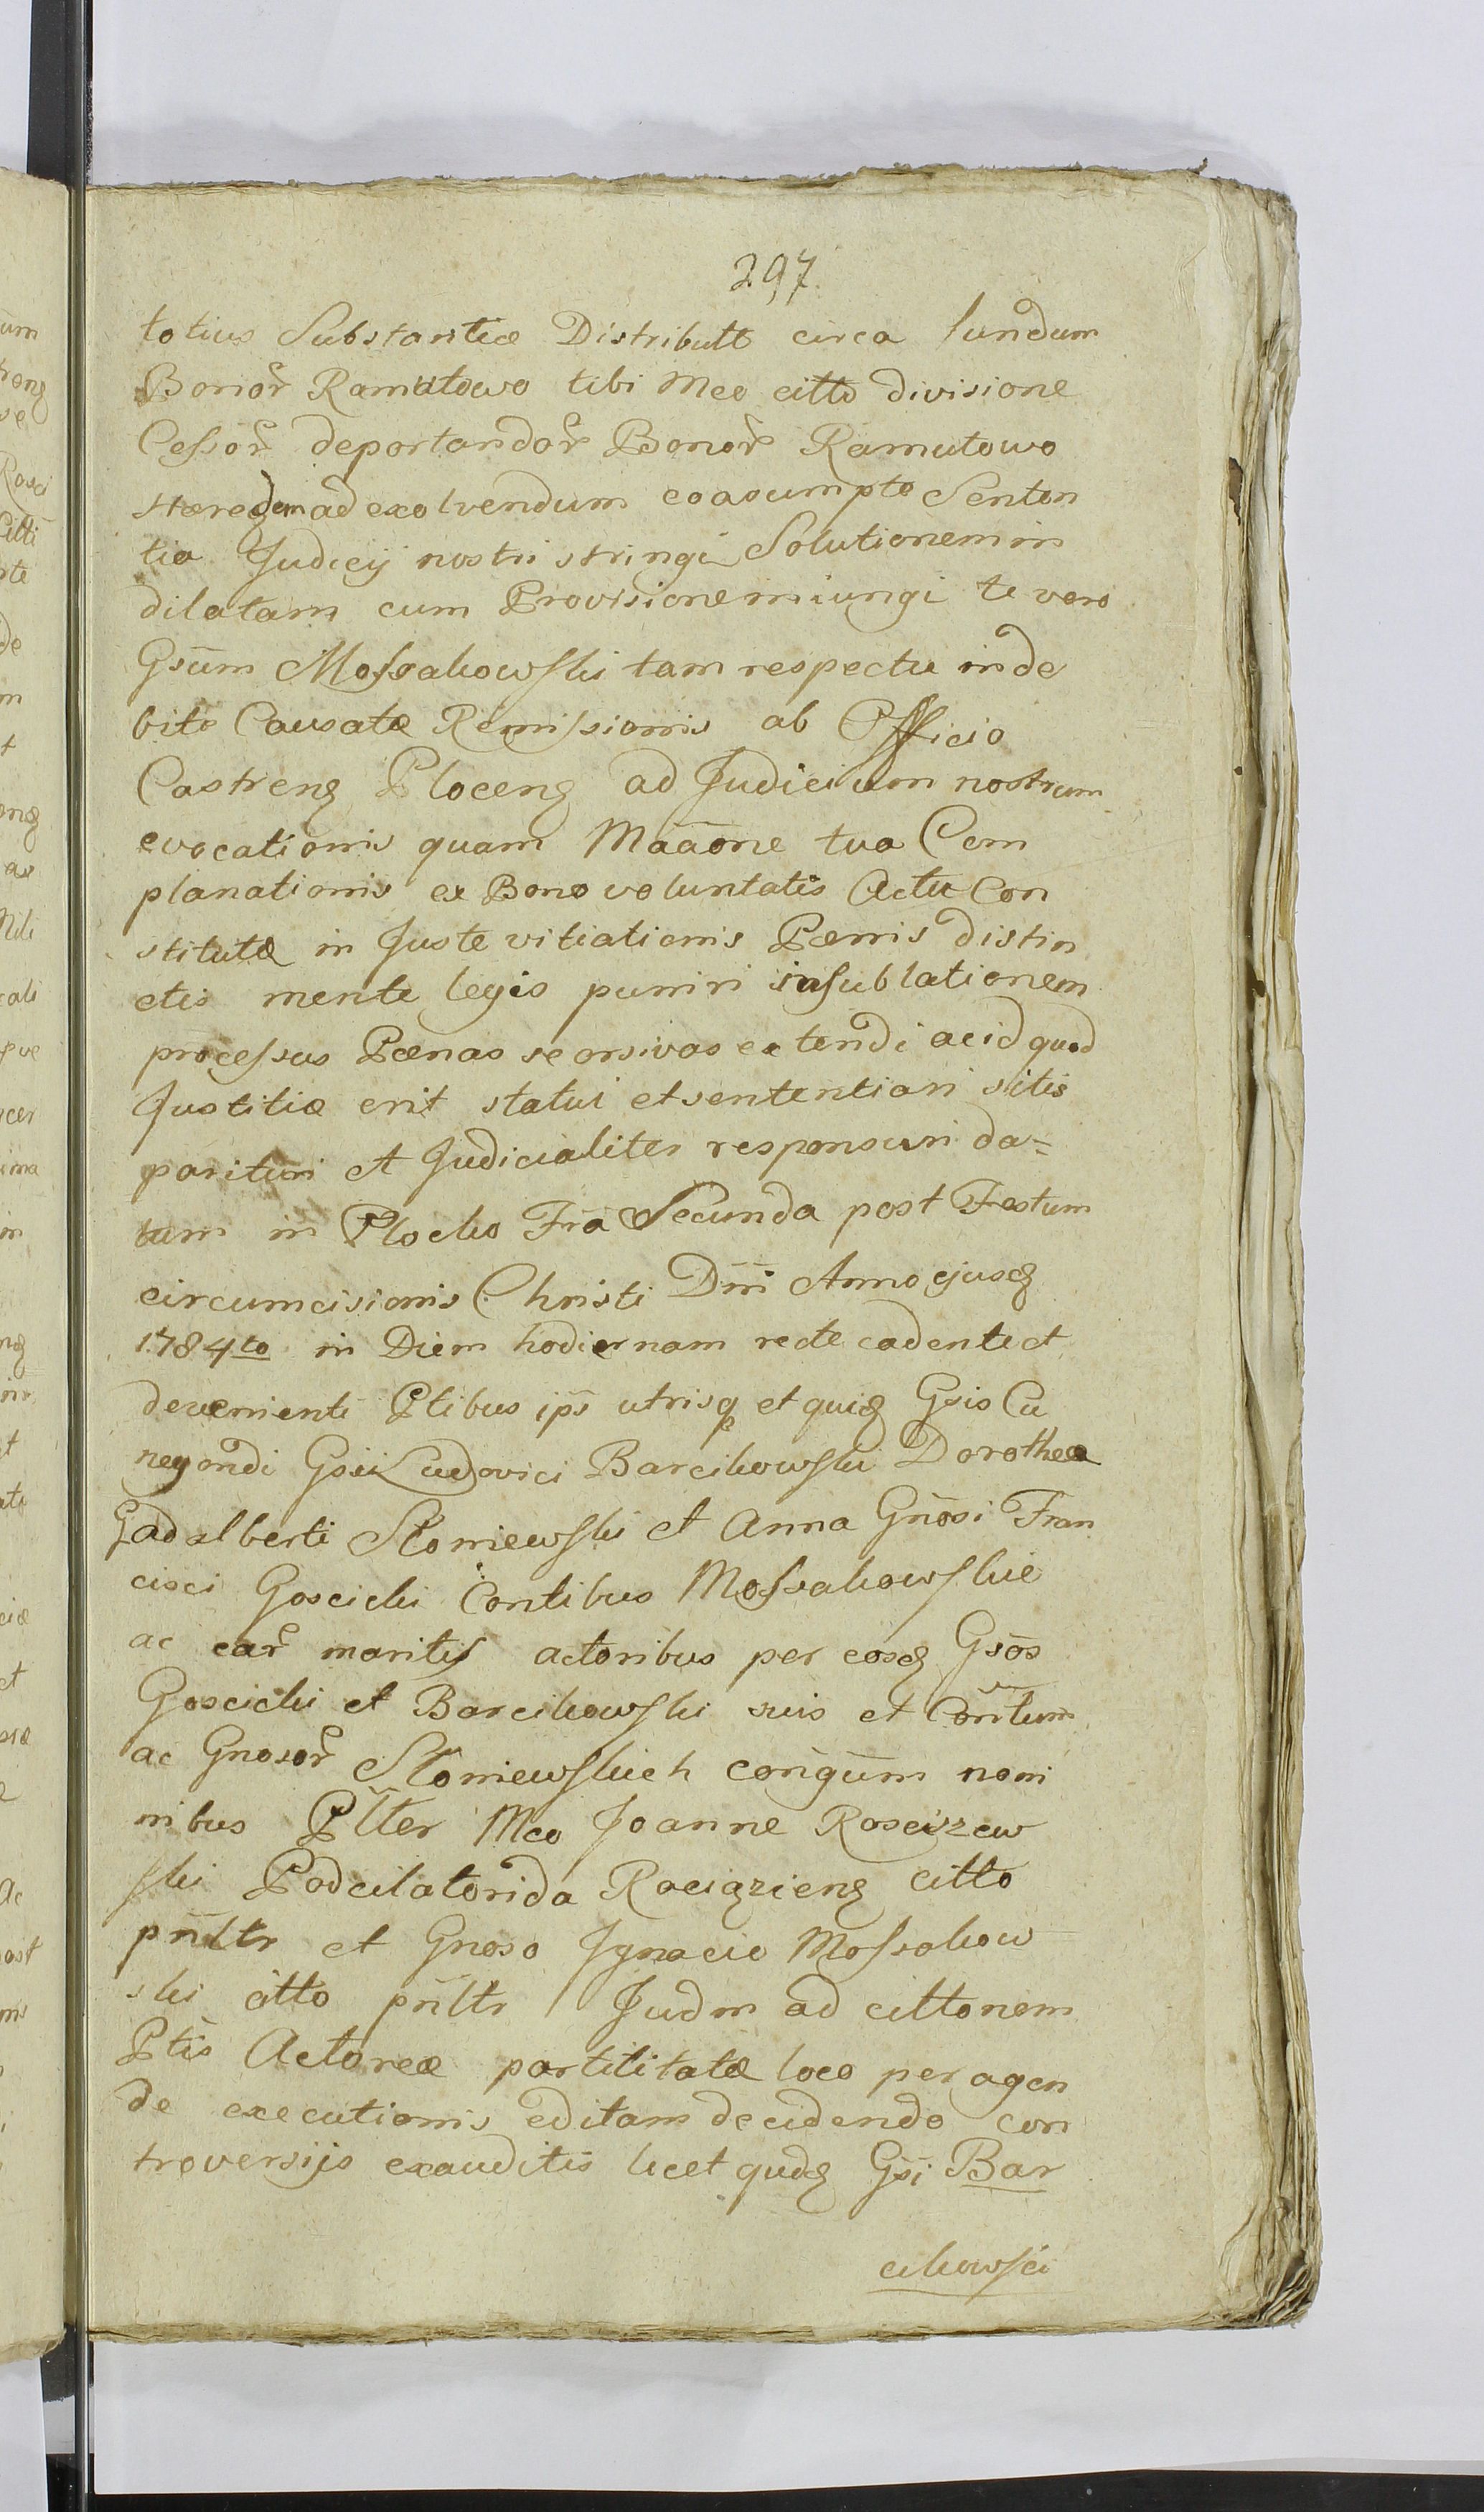 297.
totius Substantiæ Distributt circa fundum
Bonor Ramutowo tibi Mco citto divisione
Cessor deportandor Bonor Ramutowo
Hæredem ad exolvendum eoasumpto Senten
tia Judicij nostri stringi Solutionem in
dilatam cum Provisione iniungi te vero
Gsum Mossakowski tam respectu inde
bite Causatæ Remissionis ab Officio
Castrensg Plocensg ad Judicium nostrum
evocationis quam Maãone tua Com
planationis ex Bono voluntatis Actu Con
stitutæ in Juste vitiationis Pænis distin
ctis mente legis puniri in sublationem
processus Pænas seorsivas extendi ac id quod
Justitiæ erit statui et sententiari sitis
parituri et Judicialiter responsuri da=
tum in Plocko Fria Secunda post Festum
circumcisionis Christi Dni Anno ejusd
1784to in Diem hodiernam recte cadente et
devenienti Ptibus ips utrisq et quid Gsis Cu
negondi Gsii Ludovici Barcikowski Dorothea
Gadalberti Słoniewski et Anna Gnosi Fran
cisci Goscicki Contibus Mossakowskie
ac ear maritis actoribus per eosd Gsos
Goscicki et Barcikowski suis et Contum
ac Gnosor Słoniewskich conigum nomi
nibus Pltter Mco Joanne Rosciszew
ski Podcilatorida Raciązieng citto
pnltr et Gnoso Ignacio Mossakow
ski citto pnltr Judm ad cittonem
Ptis Actoreæ partititatæ loco peragen
de executionis editam decidendo con
troversijs exauditis licet quid Gsi Bar
cikowsci